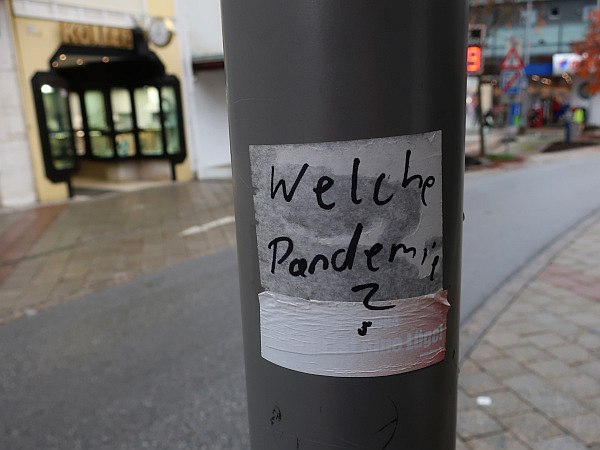 KOLLER
9
Welche
Pandemie
?